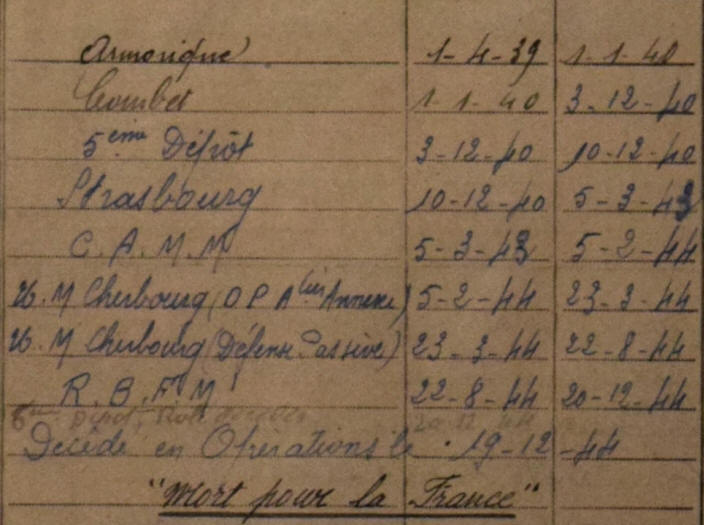 Armorique 1-4-39 1-1-40
Gombet 1-1-40 3-12-40
5ème Dépôt 3-12-40 10-12-40
Strasbourg 10-12-40 5-3-43
C.A.M.M 5-3-43 5-2-44
U.M Cherbourg (D P A Annexe) 5-2-44 23-3-44
U.M Cherbourg (Défense Passive) 23-3-44 22-8-44
R.B.F.M 22-8-44 20-12-44
Dépôt, 20 12 44
Décédé en Opérations le 19-12-44
"Mort pour la France"